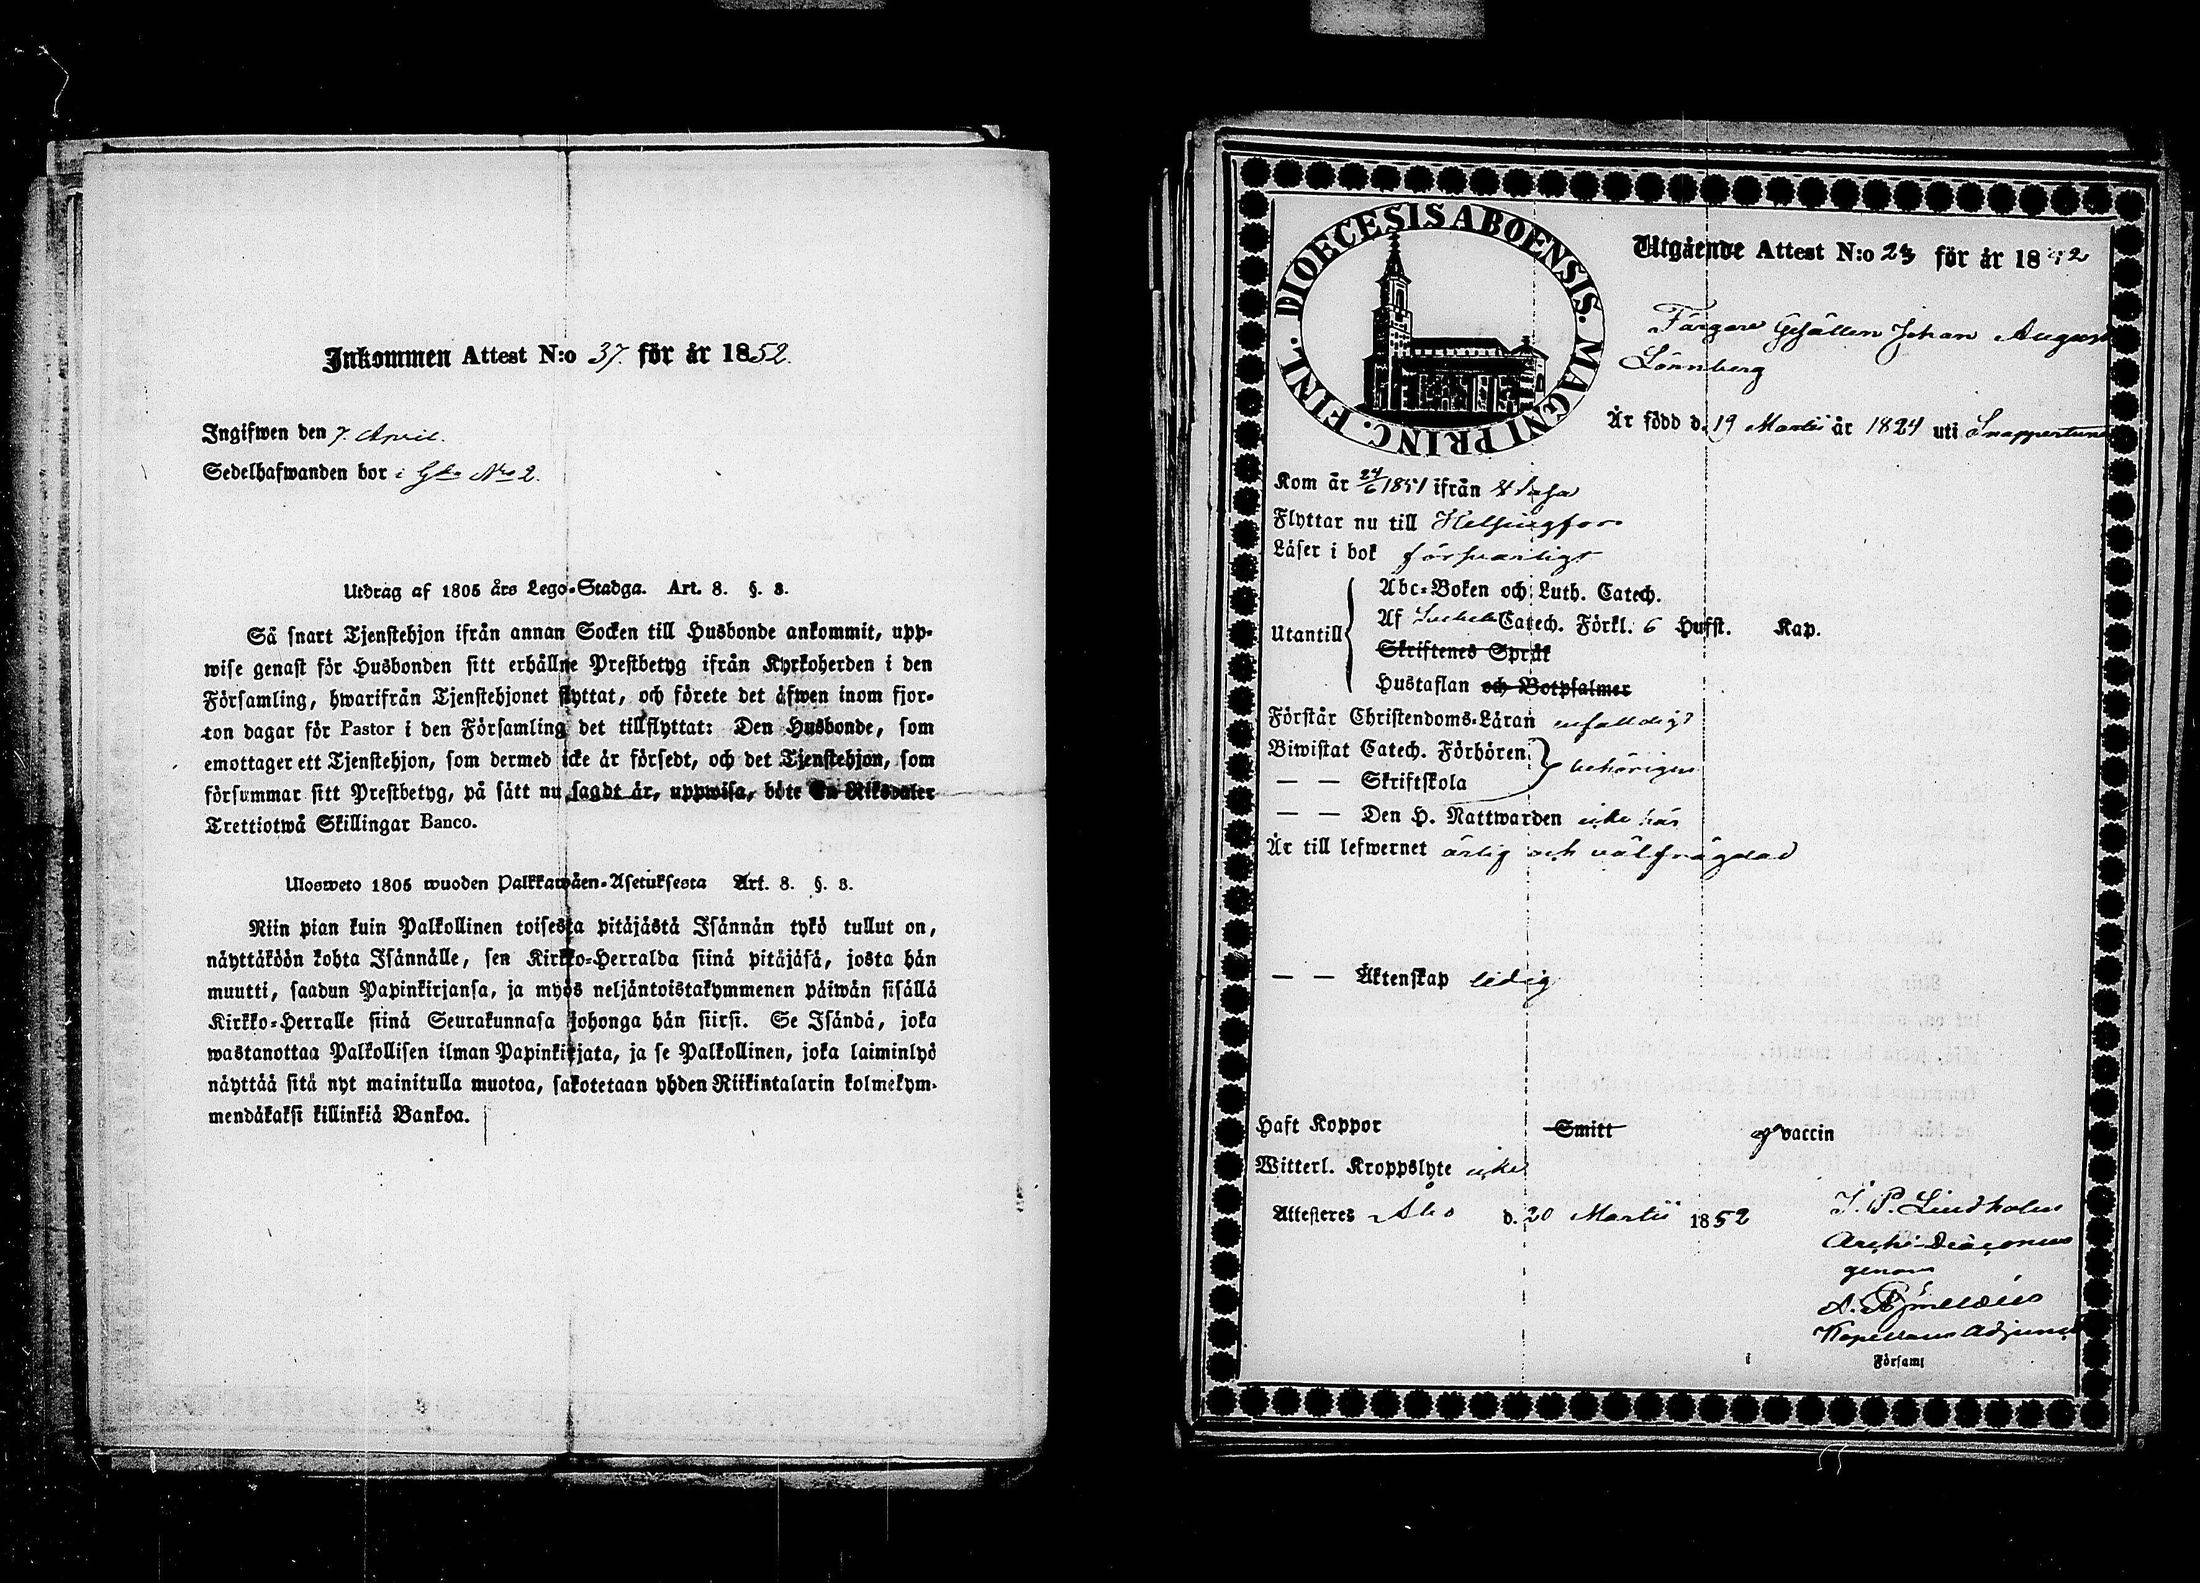 Inkommen Attest N:o 37. för år 1852.
Ingifwen den 7. April.
Sedelhafwanden bor i Gd. No 2.
Utdrag af 1805 års Lego-Stadga. Art. 8. §. 3.
Så snart Tjenstehjon ifrån annan Socken till Husbonde ankommit, upp-
wise genast för Husbonden sitt erhållne Prestbetyg ifrån Kyrkoherden i den
Församling, hwarifrån Tjenstehjonet flyttat, och förete det äfwen inom fjor-
ton dagar för Pastor i den Församling det tillflyttat: Den Husbonde, som
emottager ett Tjenstehjon, som dermed icke är försedt, och det Tjenstehjon, som
försummar sitt Prestbetyg, på sätt nu sagdt är, uppwisa, böte En Riksdaler
Trettiotwå Skillingar Banco.
Ulosweto 1805 wuoden Palkkawäen-Asetuksesta Art. 8. §. 3.
Niin pian kuin Palkollinen toisesta pitäjästä Isännän tykö tullut on,
näyttäköön kohta Isännälle, sen Kirkko-Herralda siinä pitäjäsä, josta hän
muutti, saadun Papinkirjansa, ja myös neljäntoistakymmenen päiwän sisällä
Kirkko-Herralle siinä Seurakunnasa johonga hän siirsi. Se Isändä, joka
wastanottaa Palkollisen ilman Papinkirjata, ja se Palkollinen, joka laiminlyö
näyttää sitä nyt mainitulla muotoa, sakotetaan yhden Riikintalarin kolmekym-
mendäkaksi killinkiä Bankoa.
DIOECESIS ABOENSIS. MAGNI PRINC. FINL.
Utgående Attest N:o 23 för år 1852
Färgare Gesällen Johan August
Lönnberg
Är född d. 19 Martii år 1824 uti Snappertuna
Kom år 24/6 1851 ifrån Wasa
Flyttar nu till Helsingfors
Läser i bok försvarligt
Utantill
Abc-Boken och Luth. Catech.
Af Catech. Förkl. 6 Hufst. Kap.
Skriftenes Språk
Hustaflan och Botpsalmer
Förstår Christendoms-Läran enfaldigt
Biwistat Catech. Förhören
— — Skriftskola
behörigen
— — Den H. Nattwarden icke här
Är till lefwernet ärlig och välfrägdad
— — Äktenskap ledig
Haft Koppor Smitt af vaccin
Witterl. Kroppslyte icke
Attesteres Åbo d. 20 Martii 1852
J. P. Lindholm
Archi-Diaconus
genom
A.
Kapellans Adjunct
i Församl